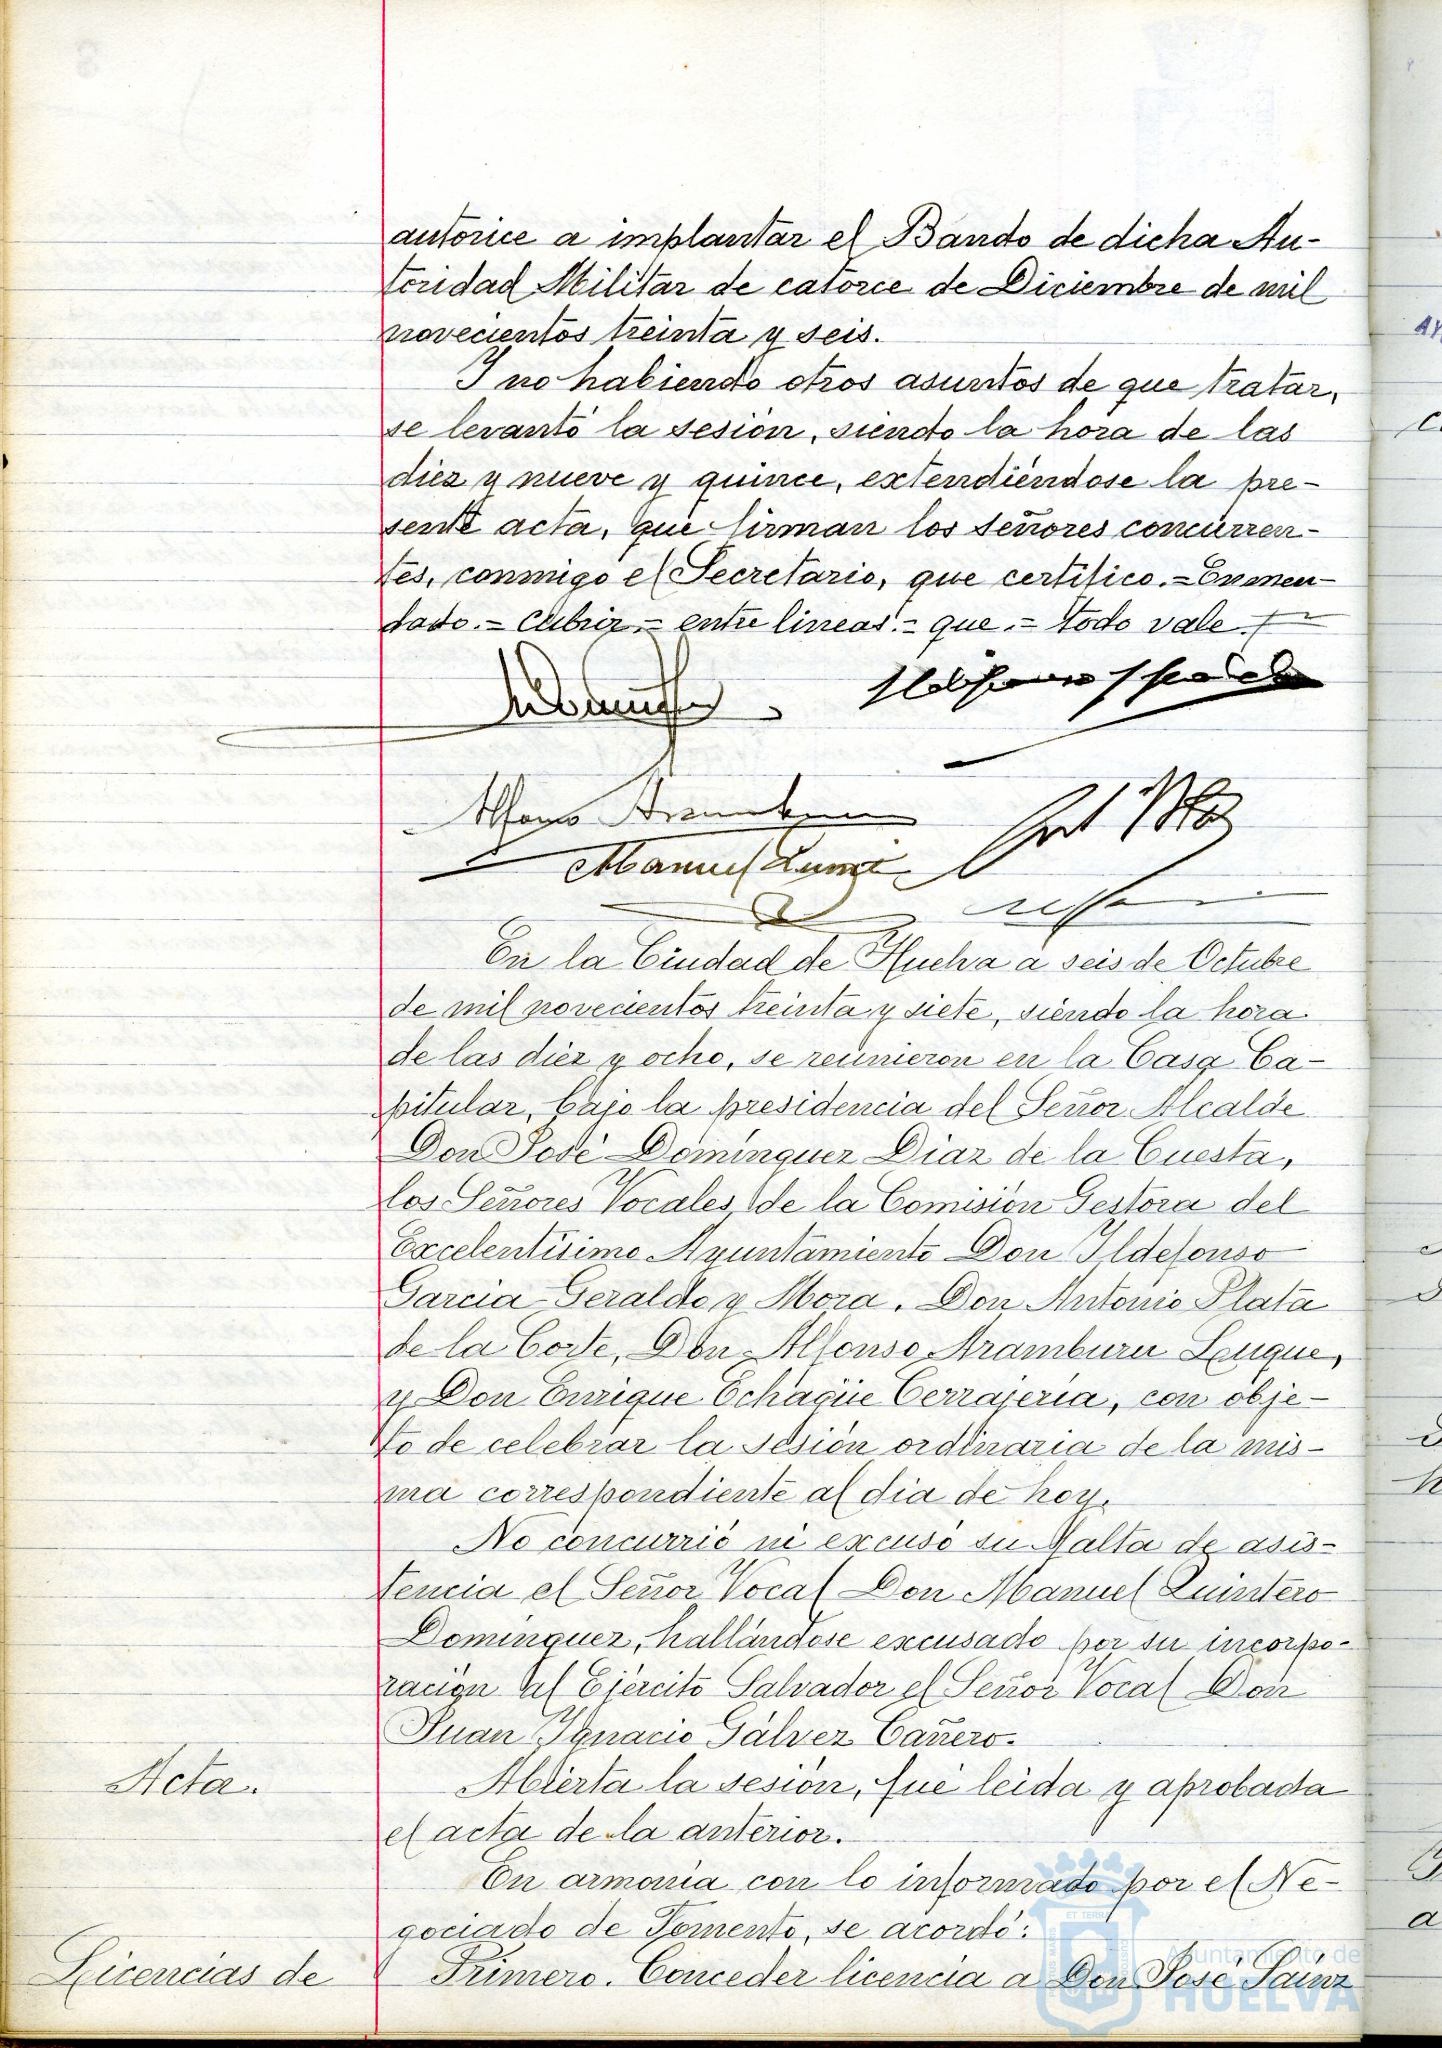 autorice a implantar el Bando de dicha Au-
toridad Militar de catorce de Diciembre de mil
novecientos treinta y seis.
Y no habiendo otros asuntos de que tratar,
se levantó la sesión, siendo la hora de las
diez y nueve y quince, extendiéndose la pre-
sente acta, que firman los señores concurren-
tes, conmigo el Secretario, que certifico.=Enmen-
dado.= cubrir.= entre lineas.= que.= todo vale.
Alfonso Aramburu
Manuel
En la Ciudad de Huelva a seis de Octubre
de mil novecientos treinta y siete, siendo la hora
de las diez y ocho, se reunieron en la Casa Ca-
pitular, bajo la presidencia del Señor Alcalde
Don José Domínguez Díaz de la Cuesta,
los Señores Vocales de la Comisión Gestora del
Excelentísimo Ayuntamiento Don Ildefonso
García Geraldo y Mora, Don Antonio Plata
de la Corte, Don Alfonso Aramburu Luque,
y Don Enrique Echagüe Cerrajería, con obje-
to de celebrar la sesión ordinaria de la mis-
ma correspondiente al dia de hoy.
No concurrió ni excusó su falta de asis-
tencia el Señor Vocal Don Manuel Quintero
Domínguez, hallándose excusado por su incorpo-
ración al Ejército Salvador el Señor Vocal Don
Juan Ignacio Gálvez Cañero.
Acta. Abierta la sesión, fué leida y aprobada
el acta de la anterior.
En armonía con lo informado por el Ne-
gociado de Fomento, se acordó:
Licencias de Primero. Conceder licencia a Don José Sainz
Ayuntamiento de
HUELVA